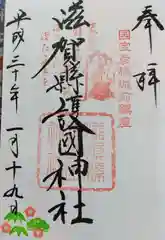 奉拝
国宝彦根城前鎮座
滋賀縣護國神社
平成三十年一月十九日